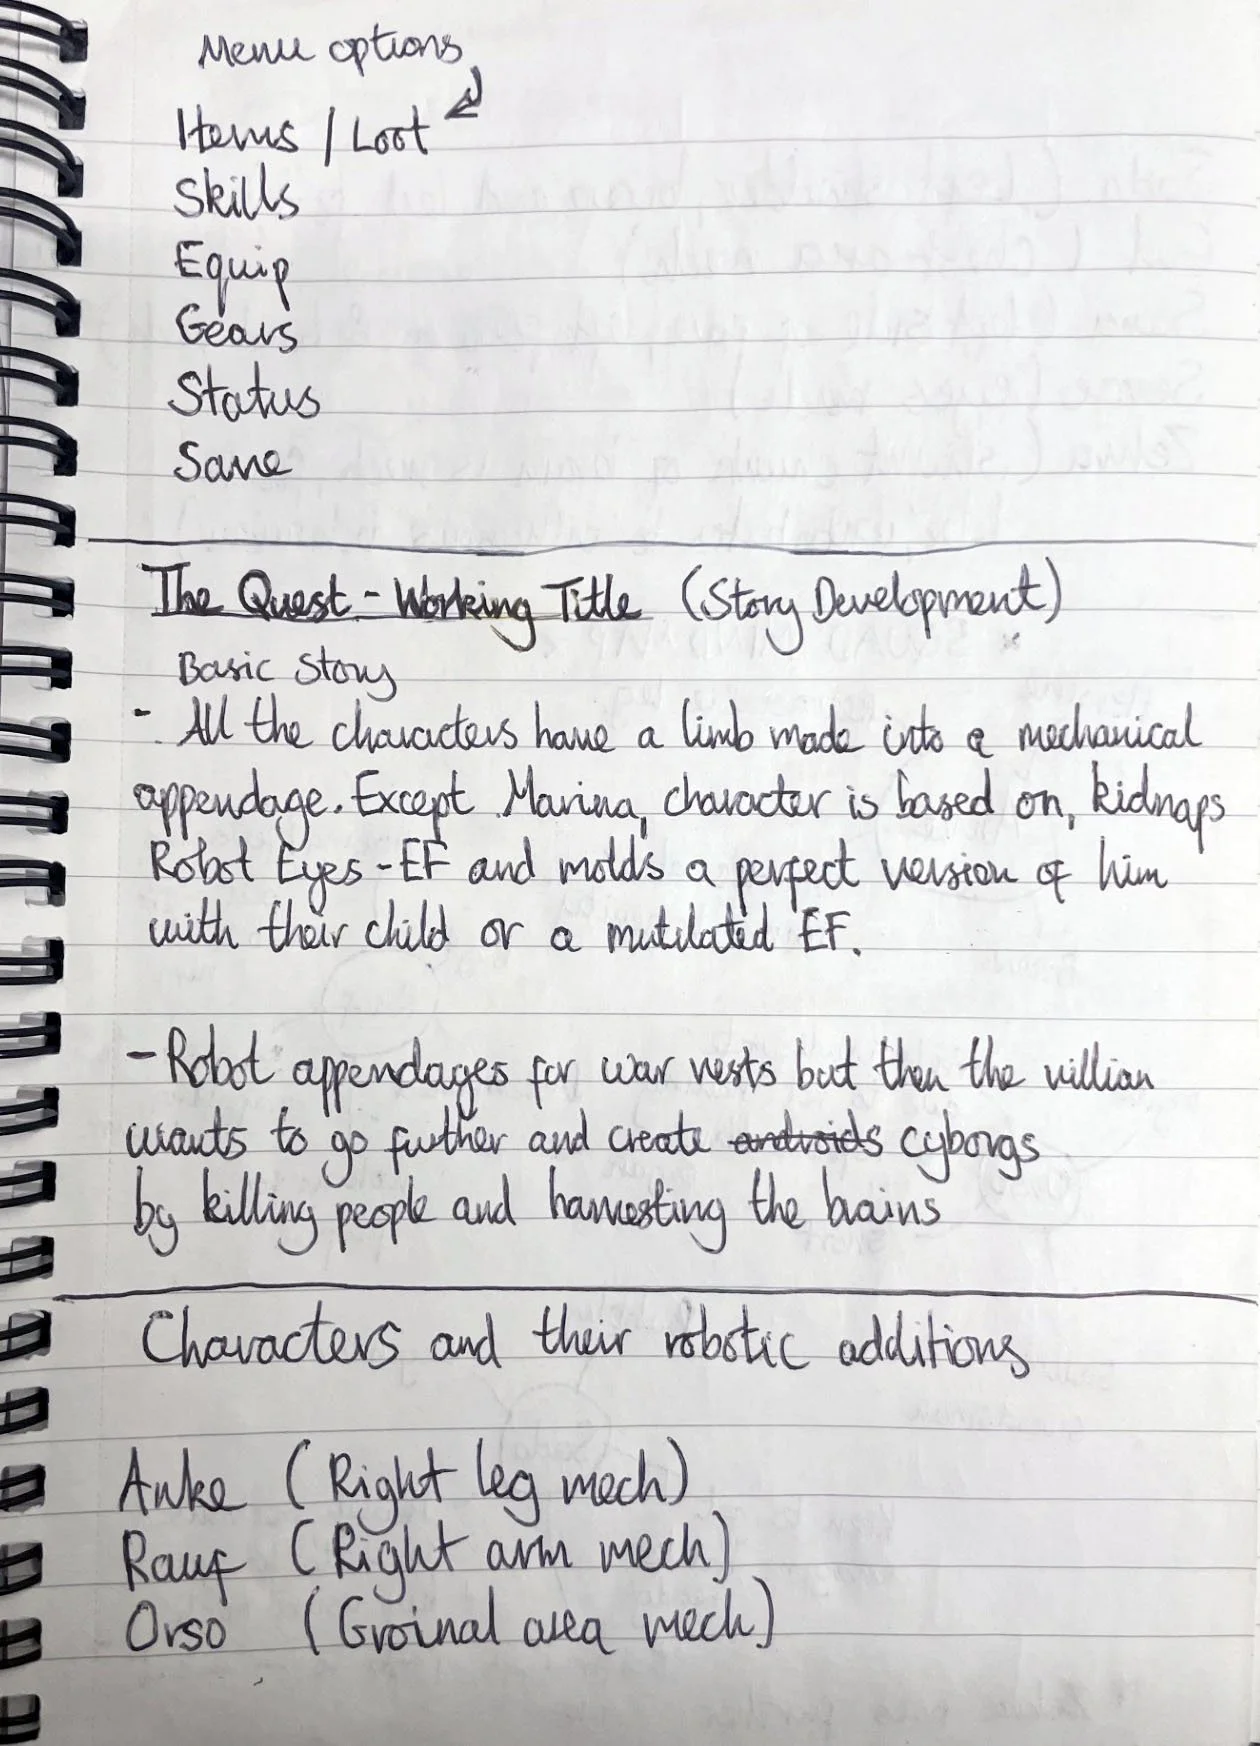 Menu options
Items / Loot
Skills
Equip
Gears
Status
Save
The Quest - Working Title (Story Development)
Basic Story
- All the characters have a limb made into a mechanical
appendage. Except Marina, character is based on, kidnaps
Robot Eyes - EF and molds a perfect version of him
with their child or a mutilated EF.
- Robot appendages for war vests but then the villian
wants to go further and create androids cyborgs
by killing people and harvesting the brains
Characters and their robotic additions
Anke (Right leg mech)
Rauf (Right arm mech)
Orso (Groinal area mech)